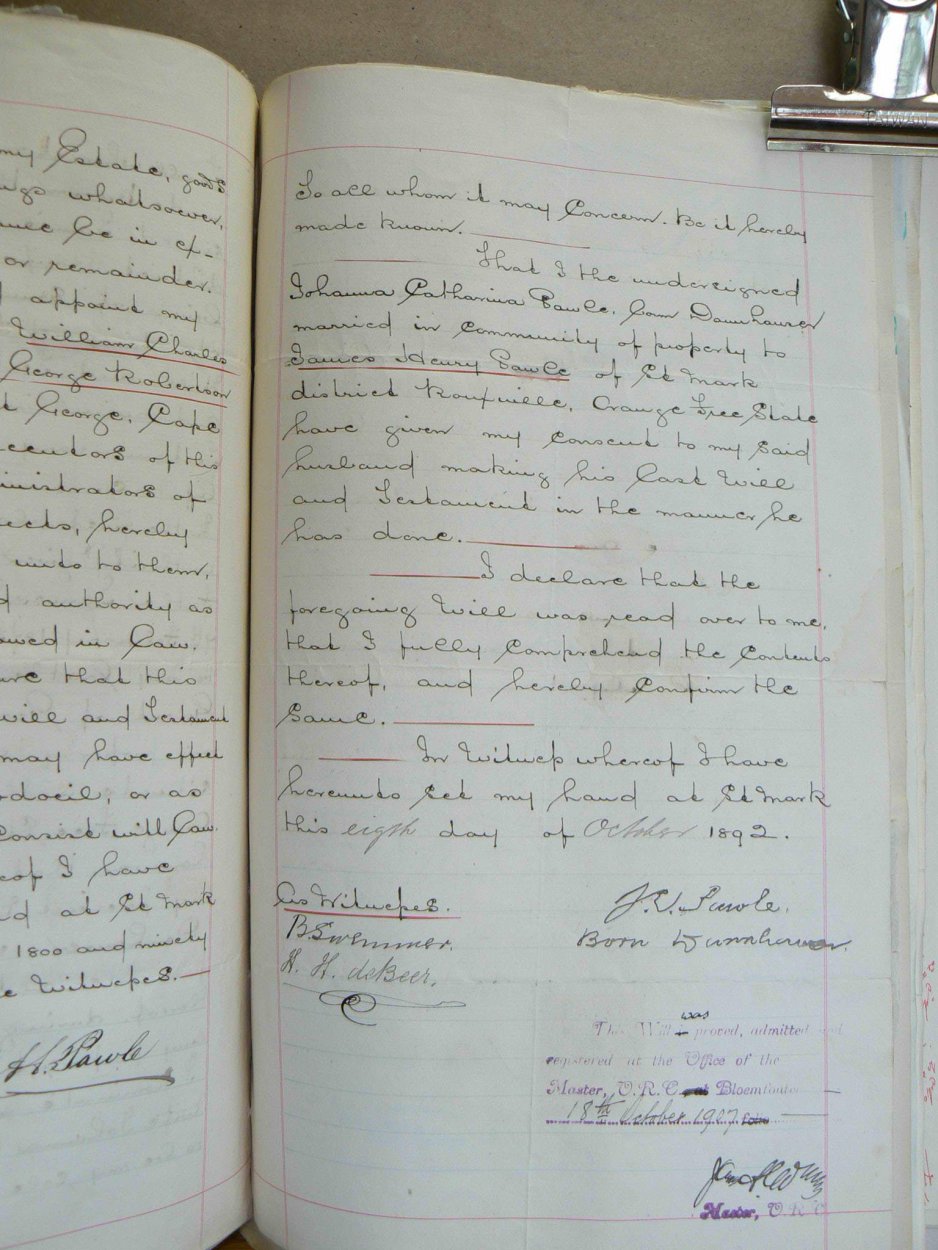 my Estate, goods
whatsoever,
be in ex-
or remainder.
appoint my
William Charles
George Robertson
George, Cape
of this
of
hereby
unto to them,
authority as
in Law.
that this
will and Testament
may have effect
or as
Consist will Law.
of I have
at St Mark
1800 and ninety
Witnesses.
H. Pawle
TAIWAN
To all whom it may Concern. Be it hereby
made known.
That I the undersigned
Johanna Catharina Pawle, born Dannhauser
married in Community of property to
James Henry Pawle of St Mark
district Rouxville, Orange Free State
have given my Consent to my Said
husband making his Last Will
and Testament in the manner he
has done.
I declare that the
foregoing Will was read over to me,
that I fully Comprehend the Contents
thereof, and hereby Confirm the
Same.
In Witness whereof I have
hereunto Set my hand at St Mark
this eigth day of October 1892.
As Witnesses.
B. Swemmer.
H. H. deBeer.
J. C. Pawle.
Born Dannhauser.
This Will was proved, admitted and
registered at the Office of the
Master, O. R. C. at Bloemfontein
18th October 1907
Master, O. R. C.